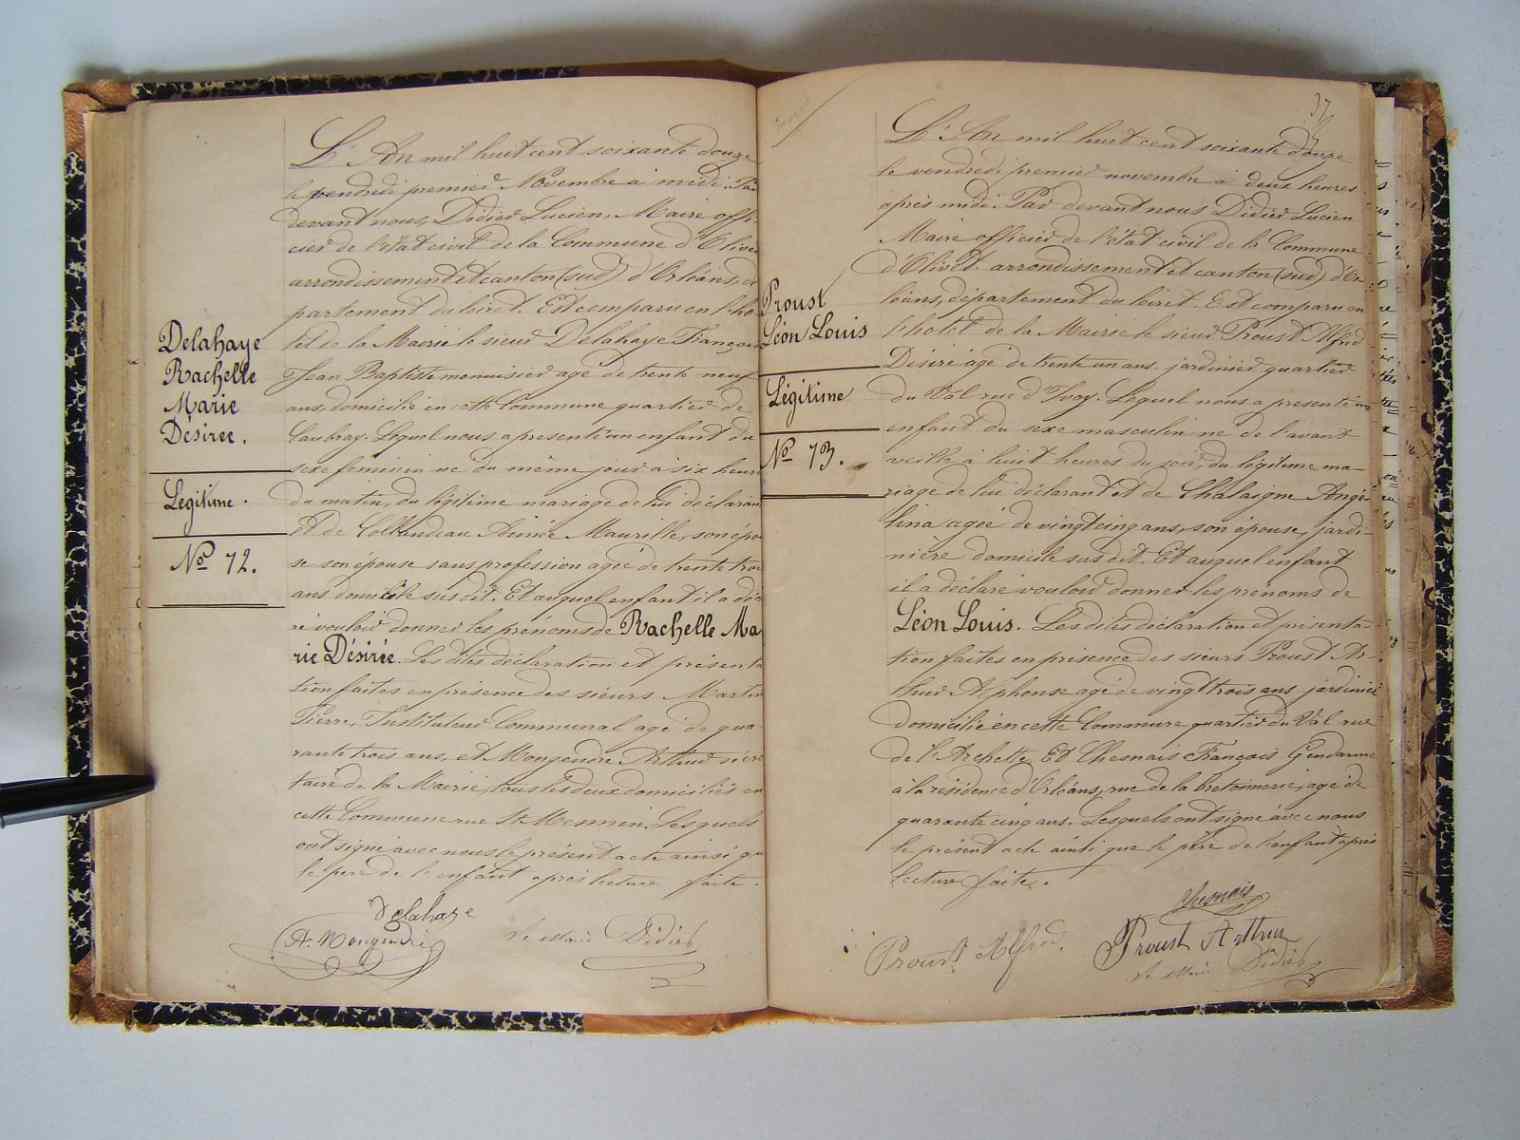 Delahaye
Rachelle
Marie
Désirée.
Légitime.
No 72.
L'An mil huit cent soixante douze
le vendredi premier Novembre à midi. Par
devant nous, Didier Lucien, Maire offi-
cier de l'état civil de la Commune d'Olivet
arrondissement et canton (sud) d'Orléans, dé
partement du Loiret. Est comparu en l'hô
tel de la Mairie le sieur Delahaye François
Jean Baptiste menuisier agé de trente neuf
ans, domicilié en cette Commune quartier de
Caubray. Lequel nous a présenté un enfant du
sexe féminin né du même jour à six heures
du matin, du légitime mariage de lui déclarant
Et de Aimée Maurille, son épou
se son épouse sans profession agée de trente trois
ans domicile susdit. Et auquel enfant il a décla
ré vouloir donner les prénoms de Rachelle Ma
rie Désirée. Les dites déclaration et présenta
tion faites en présence des sieurs Martin
Pierre, Instituteur Communal agé de qua
rante trois ans, et Mongendre Arthur sécré
taire de la Mairie, tous les deux domiciliés en
cette Commune rue St Mesmin. Lesquels
ont signé avec nous le présent acte ainsi que
le père de l'enfant après lecture faite.
Delahaye
A. Mongendre
Le Maire Didier
37
Proust
Léon Louis
Légitime
No 73.
L'An mil huit cent soixante douze
le vendredi premier novembre à deux heures
après midi. Par devant nous Didier Lucien
Maire officier de l'état civil de la Commune
d'Olivet arrondissement et canton (sud) d'Or
léans, département du Loiret. Est comparu en
l'hôtel de la Mairie le sieur Proust Alfred
Désiré agé de trente un ans jardinier quartier
du Val rue d'Ivoy. Lequel nous a présenté un
enfant du sexe masculin né de l'avant
veille à huit heures du soir, du légitime ma-
riage de lui déclarant et de Chalaigne Angé-
lina agée de vingt cinq ans, son épouse, jardi-
nière domicile susdit. Et auquel enfant
il a déclaré vouloir donner les prénoms de
Léon Louis. Les dites déclaration et présenta-
tion faites en présence des sieurs Proust Ar-
thur Alphonse agé de vingt trois ans jardinier
domicilié en cette Commune quartier du Val rue
de l'Archette. Et Chesnais François Gendarme
à la résidence d'Orléans, rue de la Bretonnerie, agé de
quarante cinq ans. Lesquels ont signé avec nous
le présent acte ainsi que le père de l'enfant après
lecture faite.
Chesnais
Proust Alfred.
Proust Arthur
Le Maire Didier